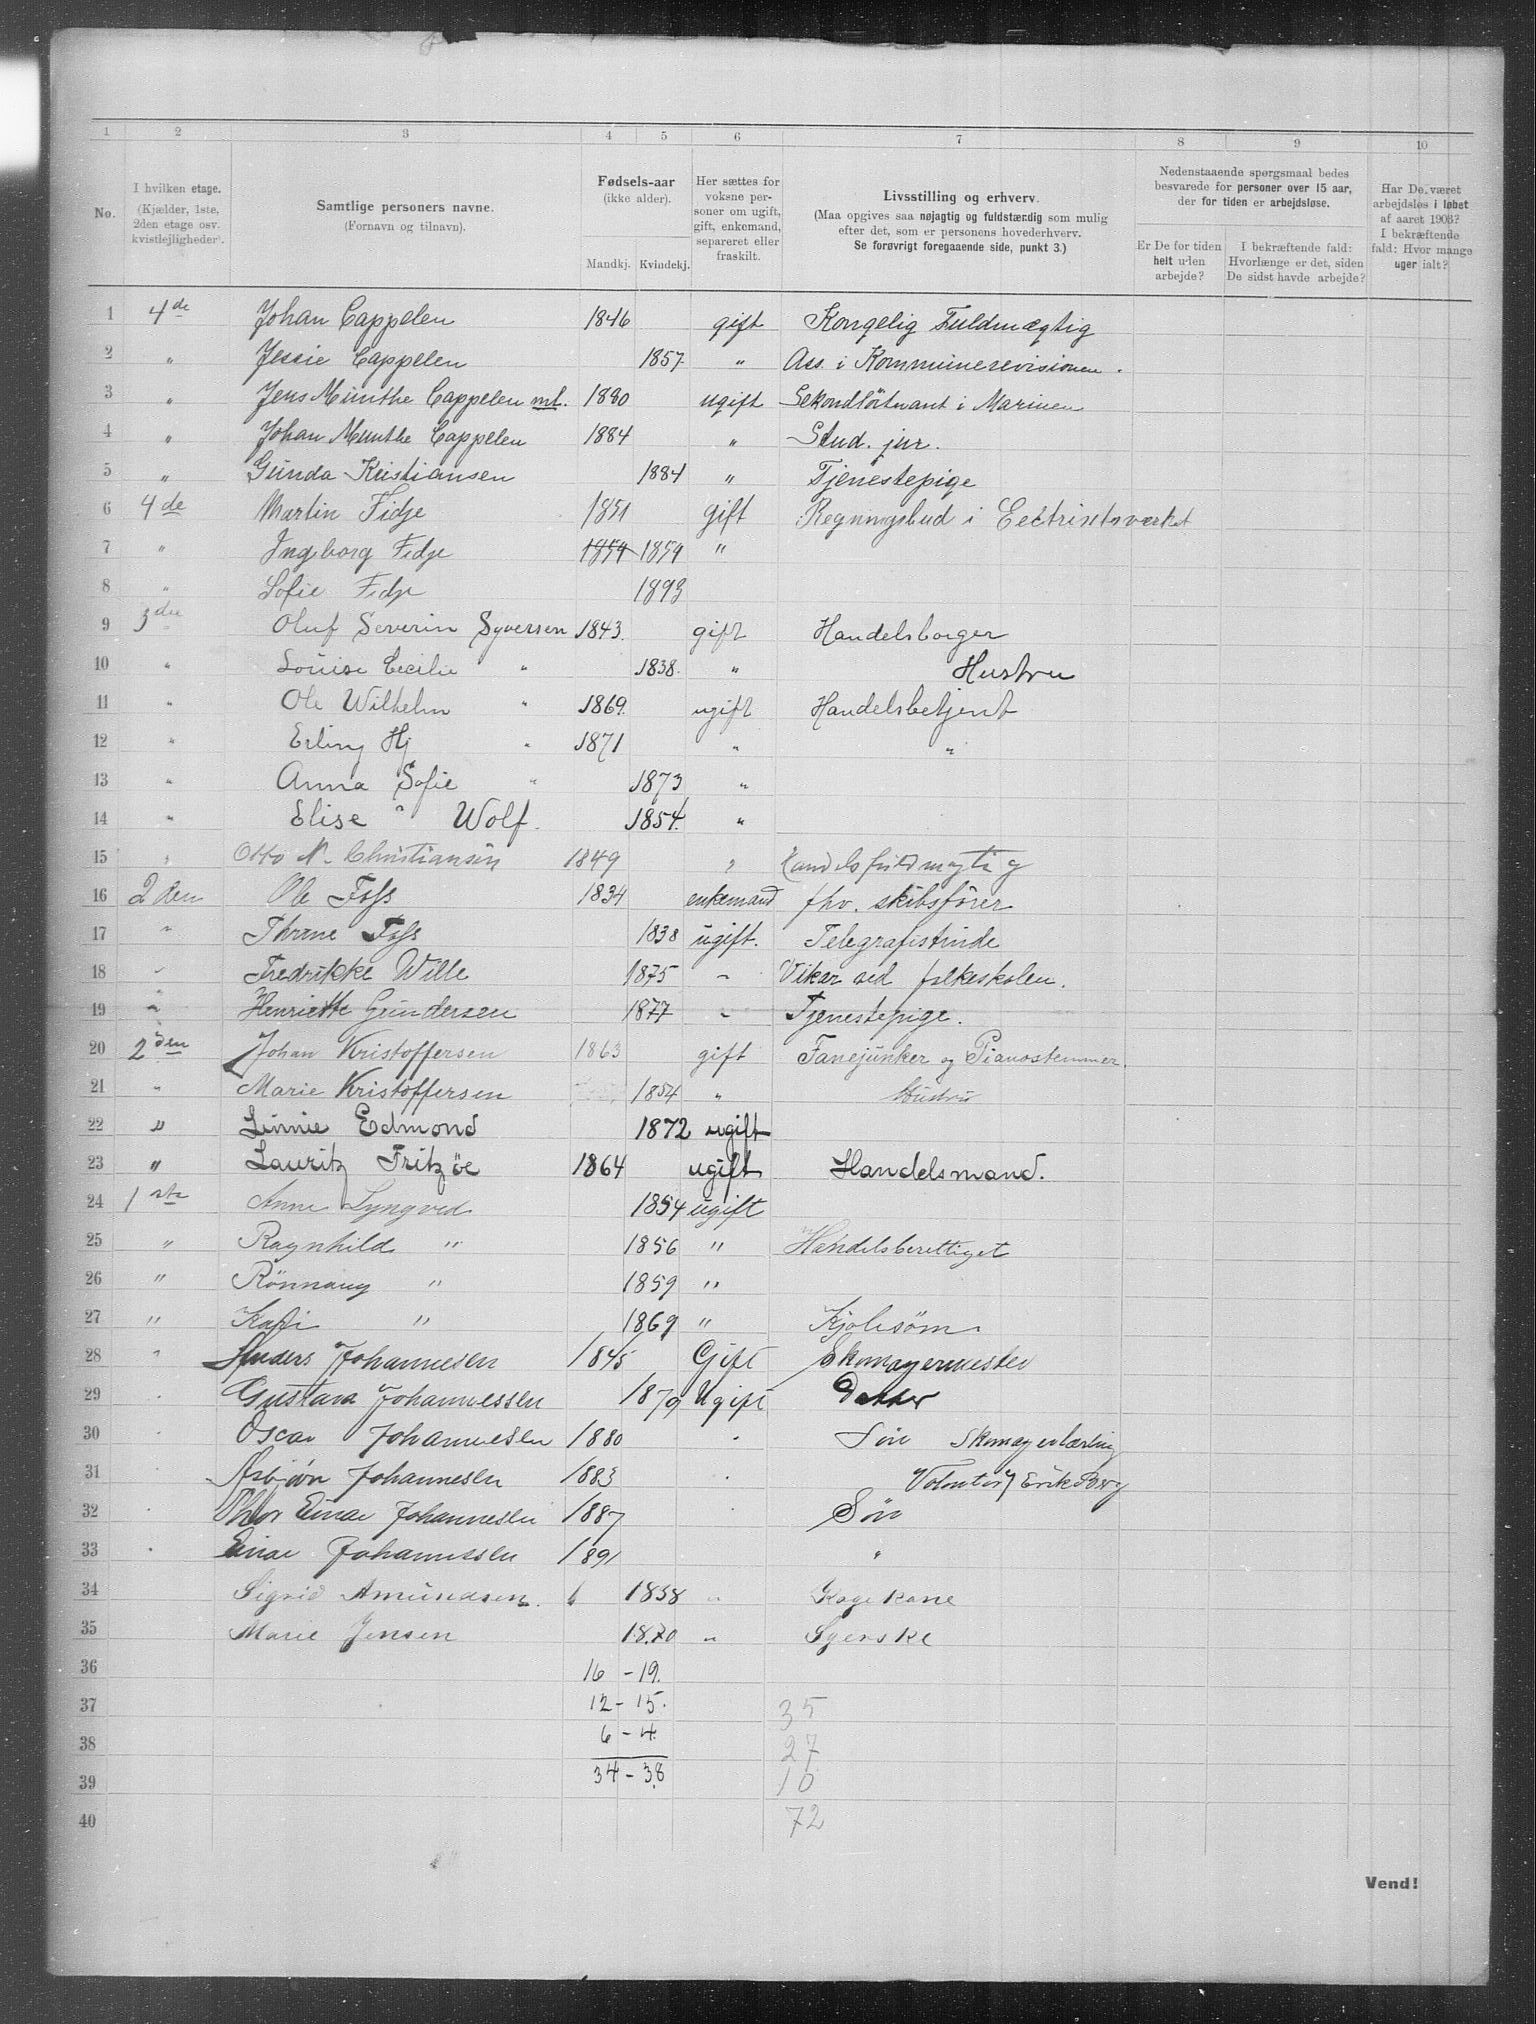 1 2 3 4 5 6 7 8 9 10
No.
I hvilken etage.
(Kjælder, 1ste,
2den etage osv.
kvistlejligheder).
Samtlige personers navne.
(Fornavn og tilnavn).
Fødsels-aar
(ikke alder).
Mandkj. Kvindekj.
Her sættes for
voksne per-
soner om ugift,
gift, enkemand,
separeret eller
fraskilt.
Livsstilling og erhverv.
(Maa opgives saa nøjagtig og fuldstændig som mulig
efter det, som er personens hovederhverv.
Se forøvrigt foregaaende side, punkt 3.)
Nedenstaaende spørgsmaal bedes
besvarede for personer over 15 aar,
der for tiden er arbejdsløse.
Er De for tiden
helt uden
arbejde?
I bekræftende fald:
Hvorlænge er det, siden
De sidst havde arbejde?
Har De været
arbejdsløs i løbet
af aaret 1903?
I bekræftende
fald: Hvor mange
uger ialt?
1 4de Johan Cappelen 1846 gift Kongelig Fuldmægtig
2 " Jessie Cappelen 1857 " Ass. i Kommunerevisionen.
3 " Jens Munthe Cappelen ml. 1880 ugift Sekondløitnant i Marinen
4 " Johan Munthe Cappelen 1884 " Stud. jur.
5 " Gunda Kristiansen 1884 " Tjenestepige
6 4de Martin Fidje 1851 gift Regningsbud i Eectrisetsværket
7 " Ingeborg Fidje 1854 1859 "
8 " Sofie Fidje 1893
9 3die Oluf Severin Syversen 1843 gift Handelsborger
10 " Louise Cecilie " 1838 " Hustru
11 " Ole Wilhelm " 1869 ugift Handelsbetjent
12 " Erling Hj " 1871 " "
13 " Anna Sofie " 1873 "
14 " Elise " Wolf. 1854 "
15 " Otto N. Christiansen 1849 " Handelsfuldmægtig
16 2den Ole Foss 1834 enkemand fhv. skibsfører
17 " Thrine Foss 1838 ugift. Telegrafistinde
18 " Fredrikke Wille 1875 " Vikar ved folkeskolen.
19 " Henriette Gundersen 1877 " Tjenestepige.
20 2den Johan Kristoffersen 1863 gift Fanejunker og Pianostemmer.
21 " Marie Kristoffersen 1854 " Hustru
22 " Linnie Edmond 1872 ugift
23 " Lauritz Fritzöe 1864 ugift Handelsmand.
24 1ste Anne Lyngved 1854 ugift
25 " Ragnhild " 1856 " Handelsberettiget
26 " Rönnaug " 1859 "
27 " Kari " 1869 " Kjolesøm
28 " Anders Johannesen 1845 Gift Skomagermester
29 " Gustava Johannessen 1879 Ugift Datter
30 " Oscar Johannesen 1880 " Søn Skomagerlærling
31 " Asbjørn Johannesen 1883 " Volontør Erik Borg
32 " Thor Einar Johannesen 1887 " Søn
33 " Einar Johannessen 1891 "
34 Sigrid Amundsen. 1838 " Kagekone
35 Marie Jensen 1870 " Syerske
36 16 - 19.
37 12 - 15. 35
38 6 - 4. 27
39 34 - 38 10
40 72
Vend!